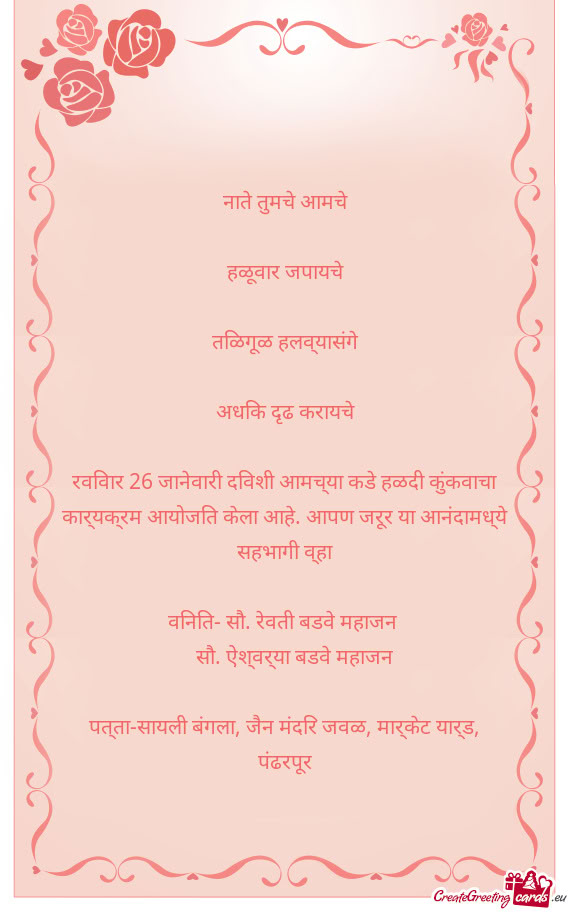 नाते तुमचे आमचे
हळूवार जपायचे
तिळगूळ हलव्यासंगे
अधिक दृढ करायचे
रविवार 26 जानेवारी दिवशी आमच्या कडे हळदी कुंकवाचा
कार्यक्रम आयोजित केला आहे. आपण जरूर या आनंदामध्ये
सहभागी व्हा
विनिती- सौ. रेवती बडवे महाजन
सौ. ऐश्वर्या बडवे महाजन
पत्ता-सायली बंगला, जैन मंदिर जवळ, मार्केट यार्ड,
पंढरपूर
CreateGreetingcards.eu